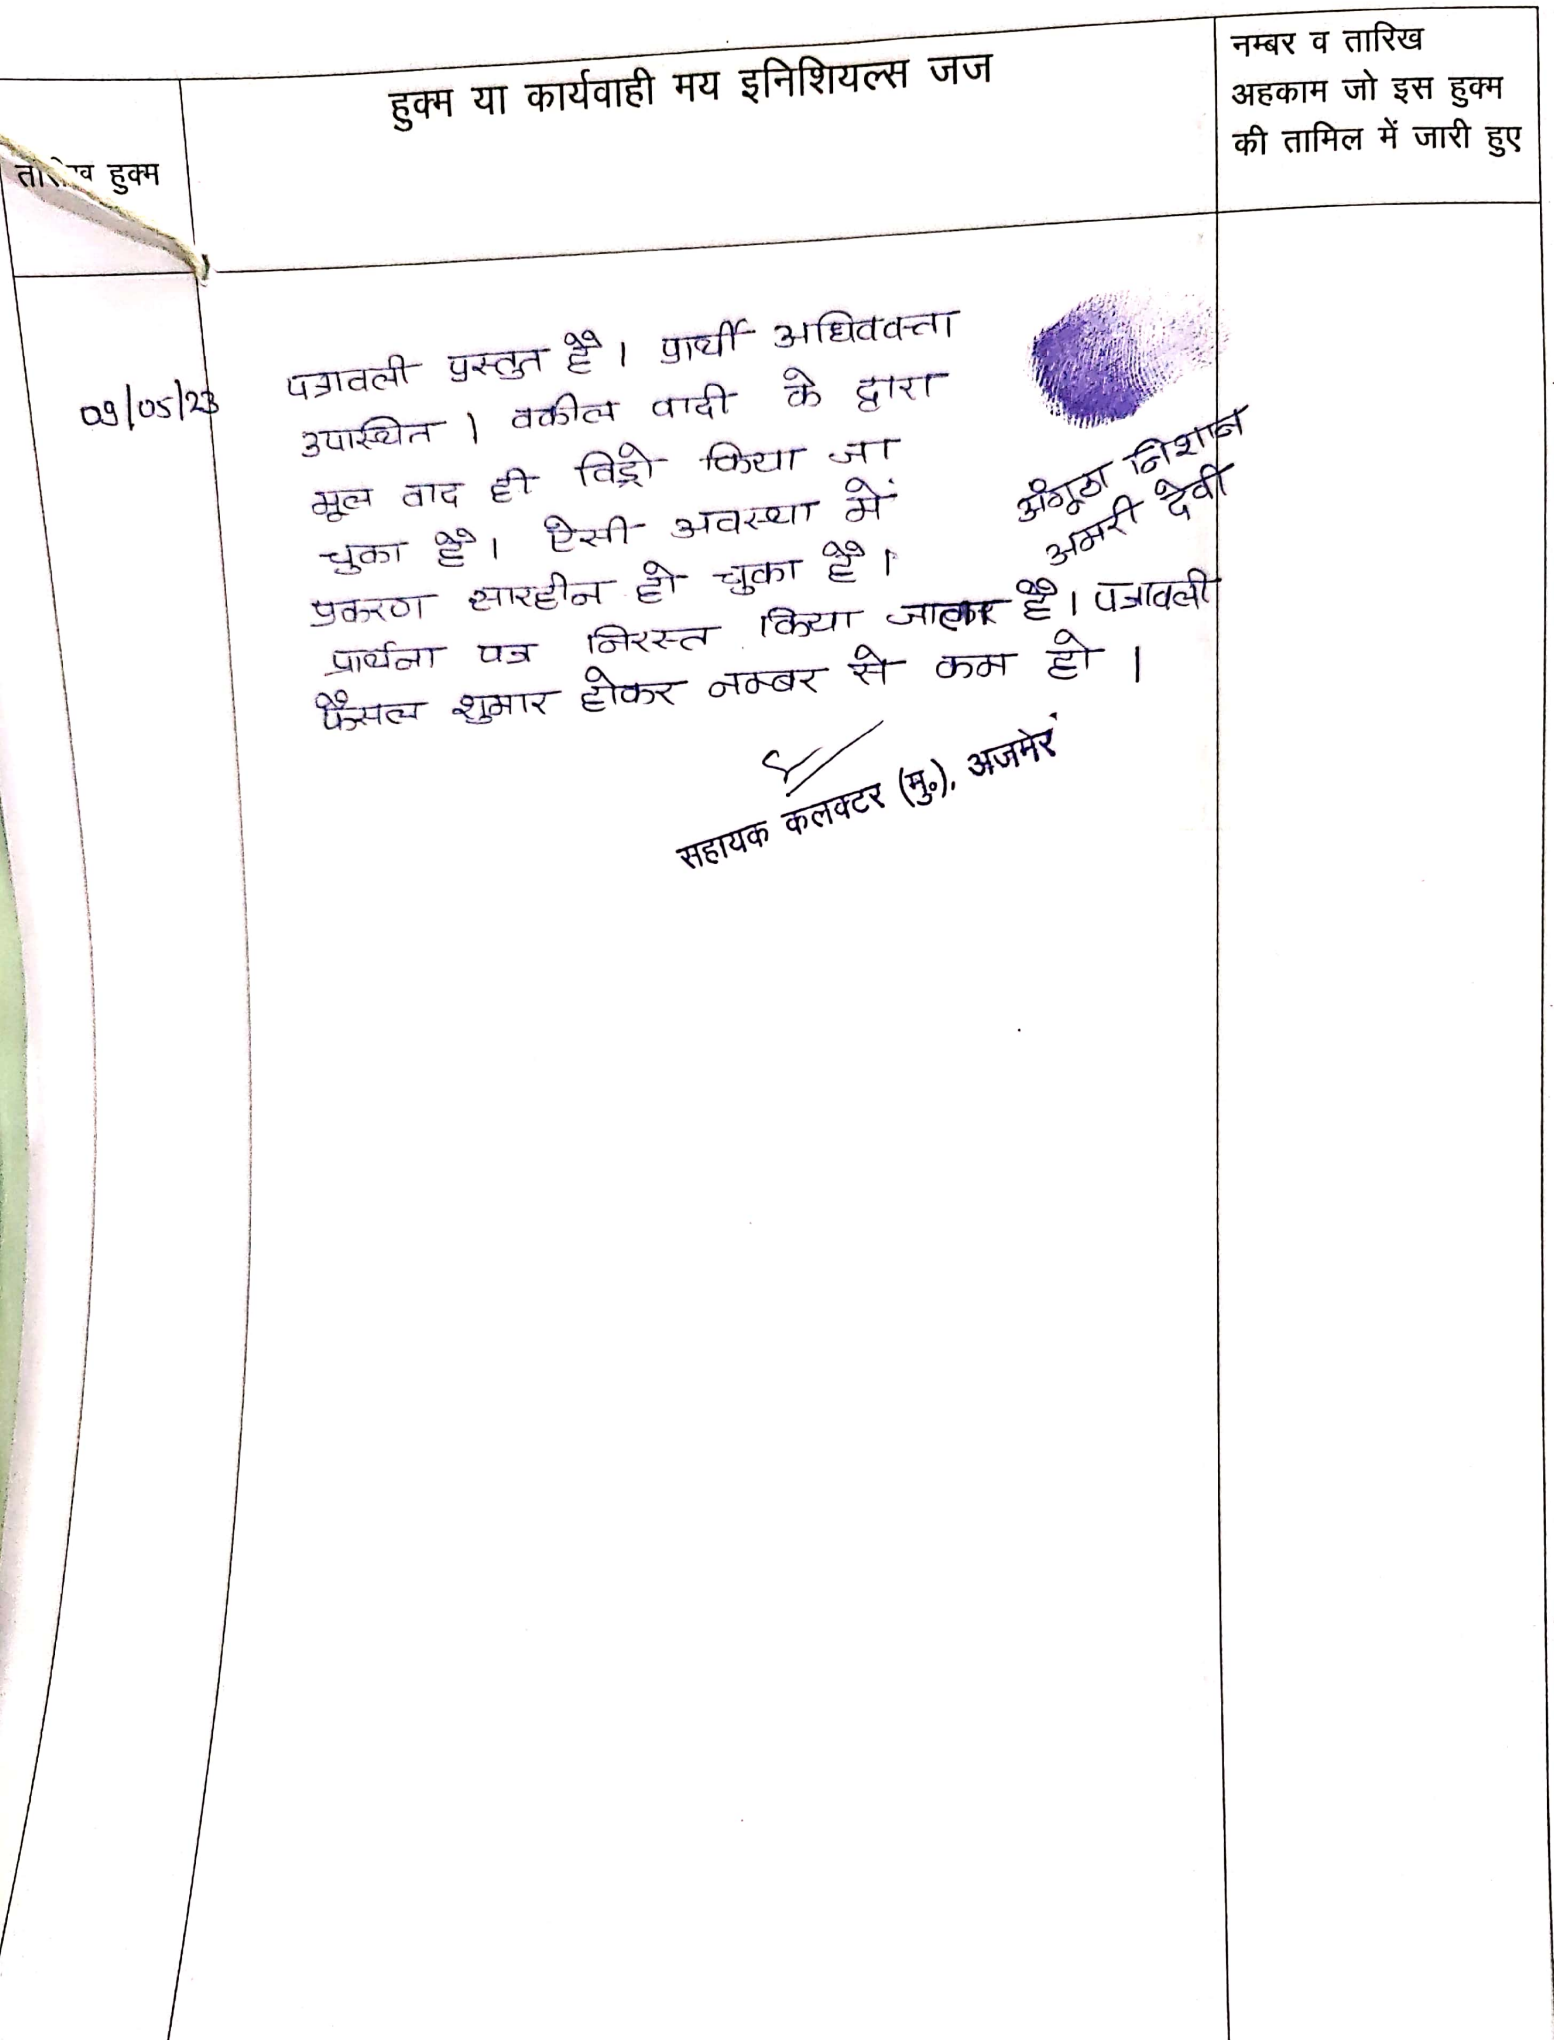 हुक्म या कार्यवाही मय इनिशियल्स जज
नम्बर व तारिख
अहकाम जो इस हुक्म
की तामिल में जारी हुए
हुक्म
09/05/23
पत्रावली प्रस्तुत है । प्रार्थी अधिवक्ता
उपस्थित । वकील वादी के द्वारा
मूल वाद ही विड्रो किया जा
चुका है । ऐसी अवस्था में
प्रकरण सारहीन हो चुका है ।
प्रार्थना पत्र निरस्त किया है । पत्रावली
फैसल शुमार होकर नम्बर से कम हो ।
अंगूठा निशान
अमरी देवी
सहायक कलक्टर (मु०), अजमेर